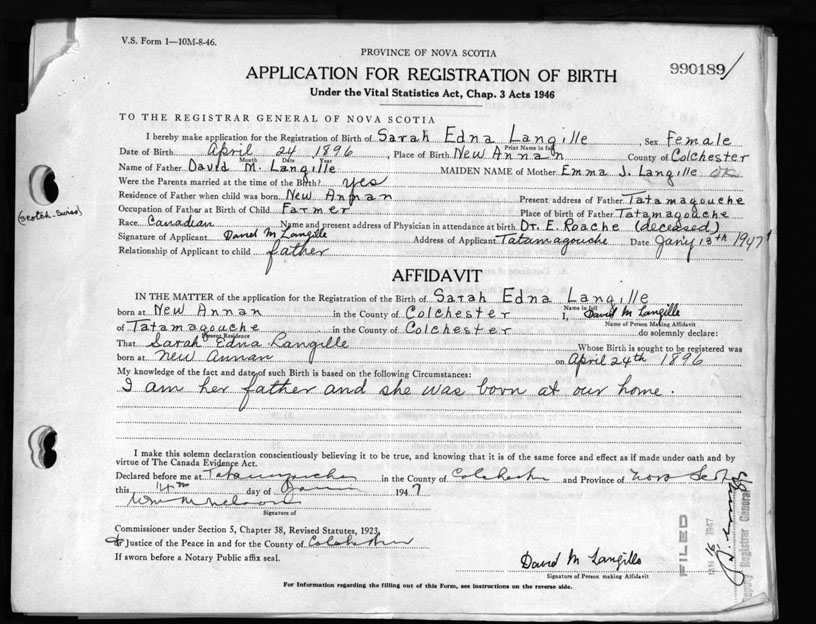 V.S. Form 1—10M-8-46.
PROVINCE OF NOVA SCOTIA
990189
APPLICATION FOR REGISTRATION OF BIRTH
Under the Vital Statistics Act, Chap. 3 Acts 1946
TO THE REGISTRAR GENERAL OF NOVA SCOTIA
I hereby make application for the Registration of Birth of Sarah Edna Langille, Sex Female
Print Name in full
Date of Birth April 24 1896, Place of Birth New Annan County of Colchester
Month Date Year
Name of Father David M. Langille MAIDEN NAME of Mother Emma J. Langille OK
Were the Parents married at the time of the Birth? yes
Residence of Father when child was born New Annan Present address of Father Tatamagouche
Occupation of Father at Birth of Child Farmer Place of birth of Father Tatamagouche
(Scotch-Swiss)
Race Canadian Name and present address of Physician in attendance at birth Dr. E. Roache (deceased)
Signature of Applicant David M Langille Address of Applicant Tatamagouche Date Jan'y 13th 1947
Relationship of Applicant to child father
AFFIDAVIT
IN THE MATTER of the application for the Registration of the Birth of Sarah Edna Langille
Name in full
born at New Annan in the County of Colchester I, David M Langille
Name of Person Making Affidavit
of Tatamagouche in the County of Colchester do solemnly declare:
Present Residence
That Sarah Edna Langille Whose Birth is sought to be registered was
born at New Annan on April 24th 1896
My knowledge of the fact and date of such Birth is based on the following Circumstances:
I am her father and she was born at our home.
I make this solemn declaration conscientiously believing it to be true, and knowing that it is of the same force and effect as if made under oath and by
virtue of The Canada Evidence Act.
Declared before me at Tatamagouche in the County of Colchester and Province of Nova Scotia
this 14th day of 1947
Signature of
Commissioner under Section 5, Chapter 38, Revised Statutes, 1923,
Justice of the Peace in and for the County of Colchester
If sworn before a Notary Public affix seal.
David M Langille
Signature of Person making Affidavit
FILED
JAN 16 1947
Deputy Registrar General
For Information regarding the filling out of this Form, see instructions on the reverse side.